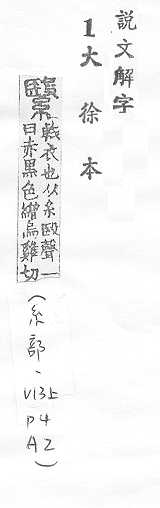 説文解字
1大徐本
繄 𢧢衣也从糸殹聲一
曰赤黑色繒烏雞切
(糸部、V13上P4A2)